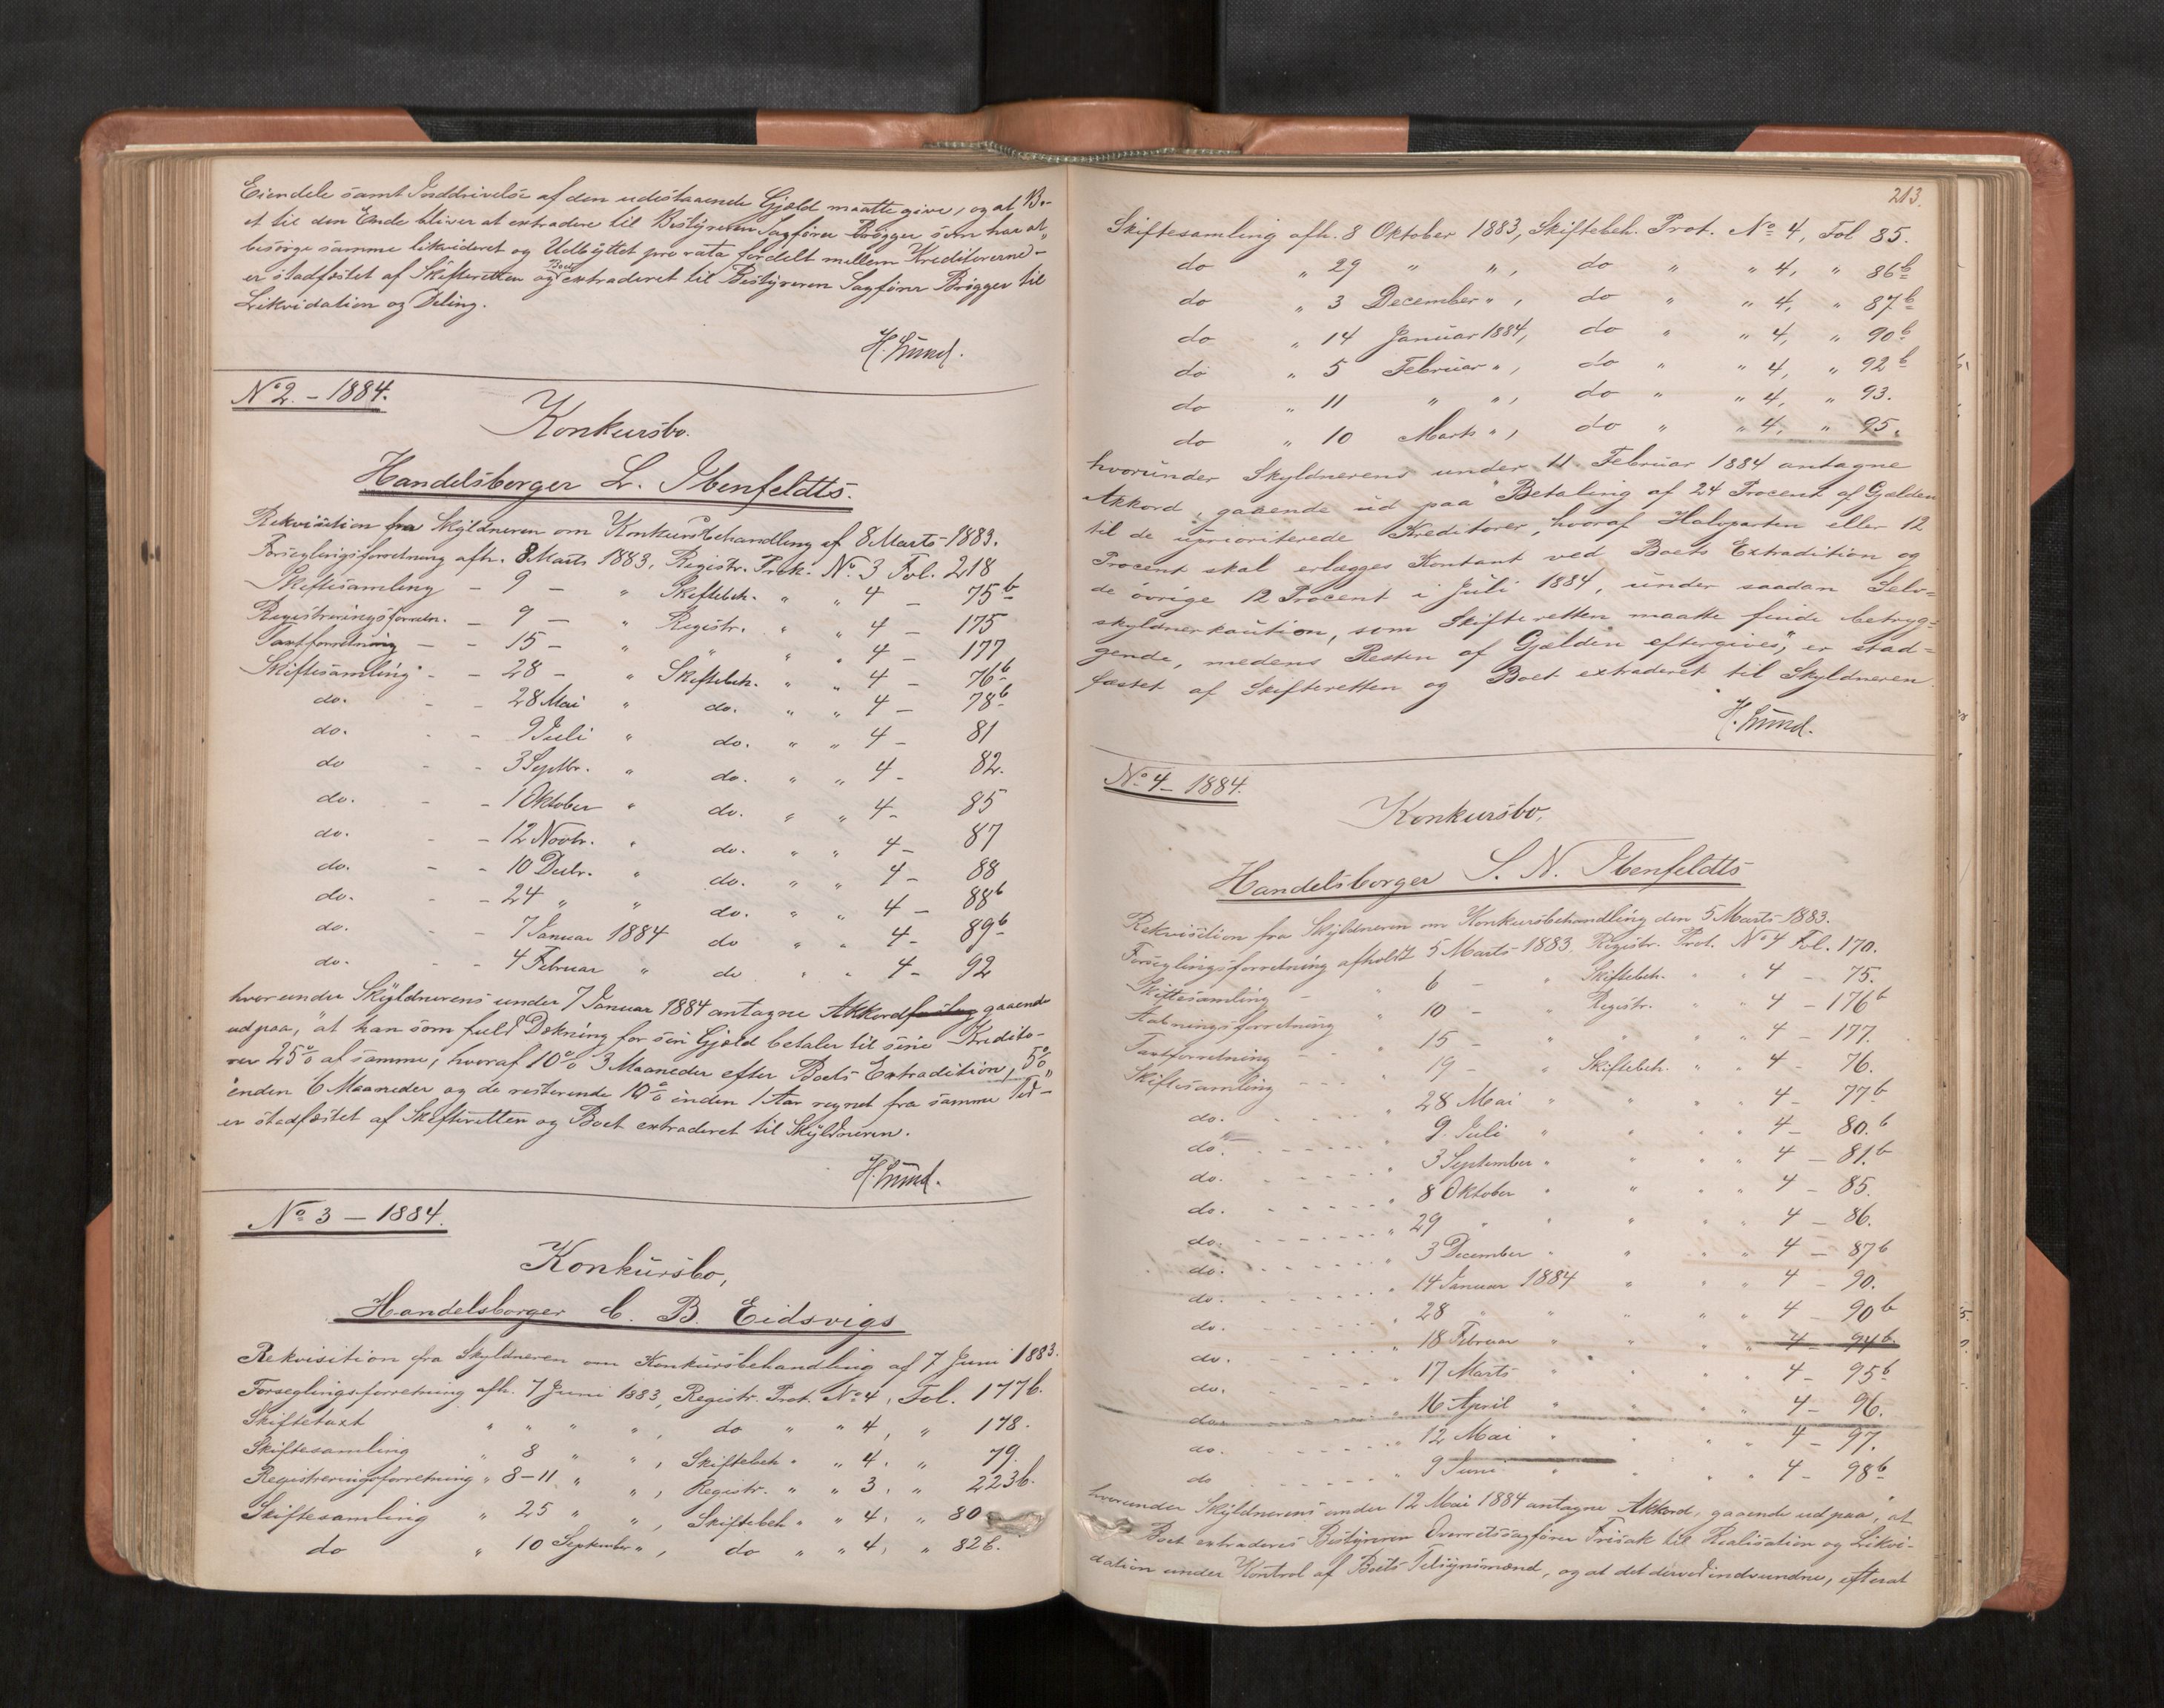 Eiendele samt Inddrivelse af den udestaaende Gjæld maatte give, og at Bo-
et til den Ende bliver at extradere til Bestyreren Sagfører Brøgger som har at
besørge samme likvideret og Udbyttet pro rata fordelt mellem Kreditorerne" –
er stadfæstet af Skifteretten og Boet extraderet til Bestyreren Sagfører Brøgger til
Likvidation og Deling.
H. Lund.
No 2. – 1884.
Konkursbo.
Handelsborger L. Ibenfeldts.
Rekvisition fra Skyldneren om Konkursbehandling af 8 Marts 1883.
Forseglingsforretning afh. 8 Marts 1883, Registr. Prot. No. 3 Fol. 218
Skiftesamling – 9 – " Skiftebeh. " " 4 – 75b
Registreringsforretn. – 9 – " Registr. " " 4 – 175
Taxtforretning – – 15 – " " " " 4 – 177
Skiftesamling – – 28 – " Skiftebeh. " " 4 – 76b
do. – – 28 Mai " do. " " 4 – 78b
do. – – 9 Juli " do. " " 4 – 81
do – – 3 Septbr. " do. " " 4 – 82.
do. – – 1 Oktober " do. " " 4 – 85
do. – – 12 Novbr. " do. " " 4 – 87
do. – – 10 Decbr. " do. " " 4 – 88
do. – – 24 " " do. " " 4 – 88b
do. – – 7 Januar 1884 do " " 4 – 89b
do. – – 4 Februar " do " " 4 – 92
hvorunder Skyldnerens under 7 Januar 1884 antagne Akkordforslag gaaende
ud paa, "at han som fuld Dækning for sin Gjæld betaler til sine Kredito-
rer 25% af samme, hvoraf 10% 3 Maaneder efter Boets Extradition, 5%
inden 6 Maaneder og de resterende 10% inden 1 Aar regnet fra samme Tid" –
er stadfæstet af Skifteretten og Boet extraderet til Skyldneren.
H. Lund.
No 3 – 1884.
Konkursbo,
Handelsborger C. B. Eidsvigs
Rekvisition fra Skyldneren om Konkursbehandling af 7 Juni 1883.
Forseglingsforretning afh. 7 Juni 1883, Registr. Prot. No 4, Fol. 177b.
Skiftetaxt " " " " , do " " 4, " 178.
Skiftesamling " 8 " " , Skiftebeh " " 4, " 79.
Registreringsforretning " 8–11 " " , Registr. " " 3, " 223b.
Skiftesamling " 25 " " , Skiftebeh " " 4, " 80
do " 10 September " , do " " 4, " 82b.
213.
Skiftesamling afh. 8 Oktober 1883, Skiftebeh. Prot. No 4, Fol 85.
do " 29 " " , do " " 4, " 86b
do " 3 December " , do " " 4, " 87b
do " 14 Januar 1884, do " " 4, " 90b
do " 5 Februar " , do " " 4, " 92b
do " 11 " " , do " " 4, " 93.
do " 10 Marts " , do " " 4, " 95.
hvorunder Skyldnerens under 11 Februar 1884 antagne
Akkord, gaaende ud paa "Betaling af 24 Procent af Gjælden
til de uprioriterede Kreditorer, hvoraf Halvparten eller 12
Procent skal erlægges Kontant ved Boets Extradition og
de øvrige 12 Procent i Juli 1884, under saadan Selv-
skyldnerkaution, som Skifteretten maatte finde betryg-
gende, medens Resten af Gjælden eftergives", er stad-
fæstet af Skifteretten og Boet extraderet til Skyldneren.
H. Lund.
No 4 – 1884.
Konkursbo,
Handelsborger S. N. Ibenfeldts
Rekvisition fra Skyldneren om Konkursbehandling den 5 Marts 1883.
Forseglingsforretning afholdt 5 Marts 1883. Registr. Prot. No 4 Fol. 170.
Skiftesamling – " 6 – " Skiftebeh. " " 4 – 75.
Aabningsforretning " 10 – " Registr. " " 4 – 176b
Taxtforretning – – " 15 – " " " " 4 – 177.
Skiftesamling – – – " 19 – " Skiftebeh. " " 4 – 76.
do. " 28 Mai " " " " 4 – 77b
do. " 9. Juli " " " " 4 – 80.b
do. " 3 September " " " " 4 – 81.b
do. " 8 Oktober " " " " 4 – 85.
do. " 29 " " " " " 4 – 86.
do. " 3 December " " " " 4 – 87b
do. " 14 Januar 1884 " " " 4 – 90.
do. " 28 " " " " " 4 – 90b
do. " 18 Februar " " " " 4 – 94b.
do. " 17 Marts " " " " 4 – 95b
do. " 16 April " " " " 4 – 96.
do. " 12 Mai " " " " 4 – 97.
do " 9 Juni " " " " 4 – 98b
hvorunder Skyldnerens under 12 Mai 1884 antagne Akkord, gaaende ud paa, "at
Boet extraderes Bestyreren Overretssagfører Frisak til Realisation og Likvi-
dation under Kontrol af Boets Tilsynsmænd, og at det derved indvundne, efterat